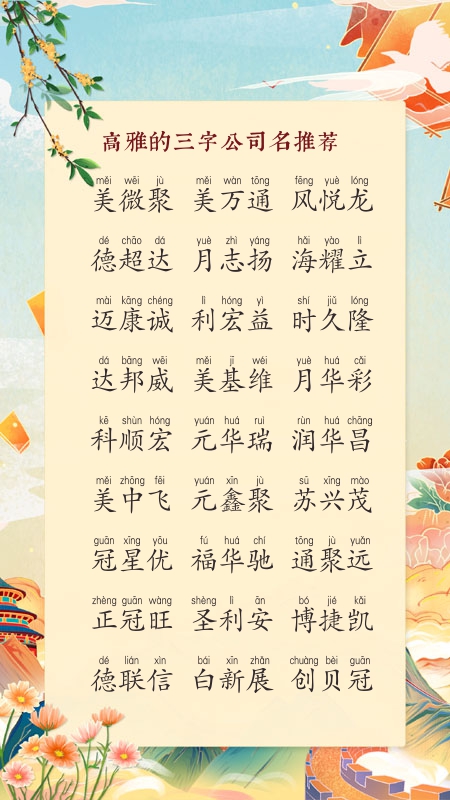 高雅的三字公司名推荐
měi wēi jù měi wàn tōng fēng yuè lóng
美微聚 美万通 风悦龙
dé chāo dá yuè zhì yáng hǎi yào lì
德超达 月志扬 海耀立
mài kāng chéng lì hóng yì shí jiǔ lóng
迈康诚 利宏益 时久隆
dá bāng wēi měi jī wéi yuè huá cǎi
达邦威 美基维 月华彩
kē shùn hóng yuán huá ruì rùn huá chāng
科顺宏 元华瑞 润华昌
měi zhōng fēi yuán xīn jù sū xīng mào
美中飞 元鑫聚 苏兴茂
guān xīng yōu fú huá chí tōng jù yuǎn
冠星优 福华驰 通聚远
zhèng guān wàng shèng lì ān bó jié kǎi
正冠旺 圣利安 博捷凯
dé lián xìn bái xīn zhǎn chuàng bèi guān
德联信 白新展 创贝冠